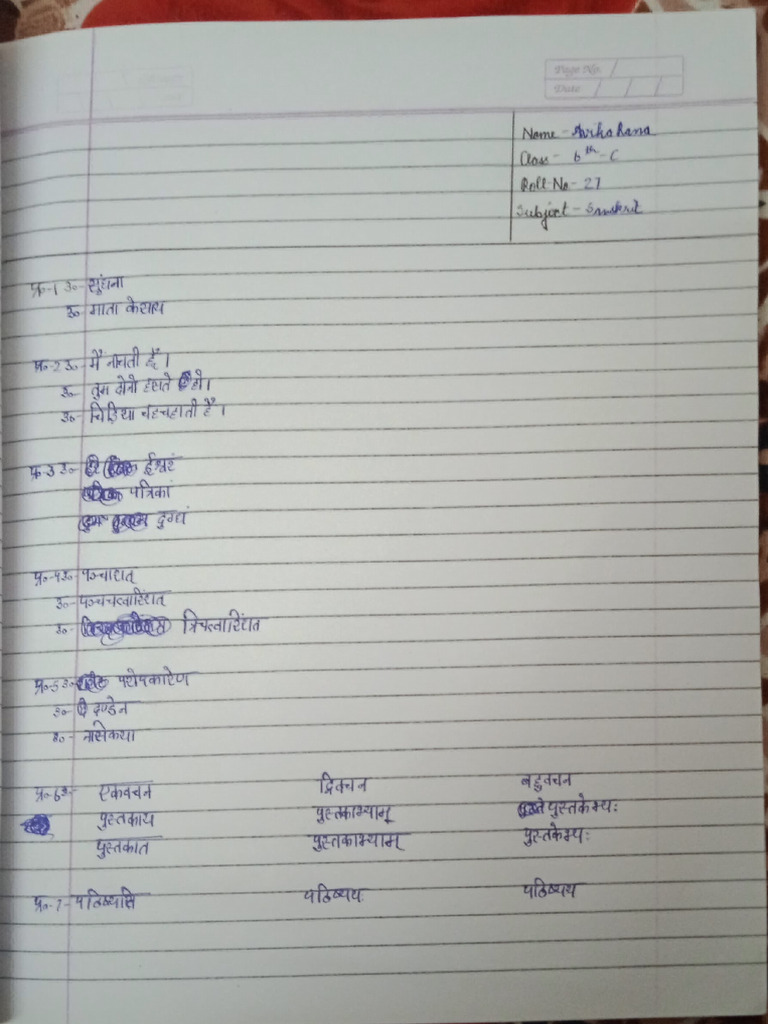 Page No.
Date
Name - Arsha Rana
Class - 6th - C
Roll No - 27
Subject - Sanskrit
प्र०-1 उ०- सुंघना
उ० माता के साथ
प्र०-2 उ०- मैं नाचती हूँ।
उ०- तुम दोनो हसते हो।
उ०- चिड़िया चहचहाती है।
प्र०-3 उ०- ईश्वरं
पत्रिकां
दुग्धं
प्र०-4 उ०- पञ्चाशत्
उ०- पञ्चचत्वारिंशत्
उ०- त्रिचत्वारिंशत
प्र०-5 उ०- परोपकारेण
उ०- दण्डेन
उ०- नासिकया
प्र०-6 उ०- एकवचन द्विवचन बहुवचन
पुस्तकाय पुस्तकाभ्याम् पुस्तकेभ्यः
पुस्तकात पुस्तकाभ्याम् पुस्तकेभ्यः
प्र०-7- पठिष्यसि पठिष्यथ पठिष्यथ